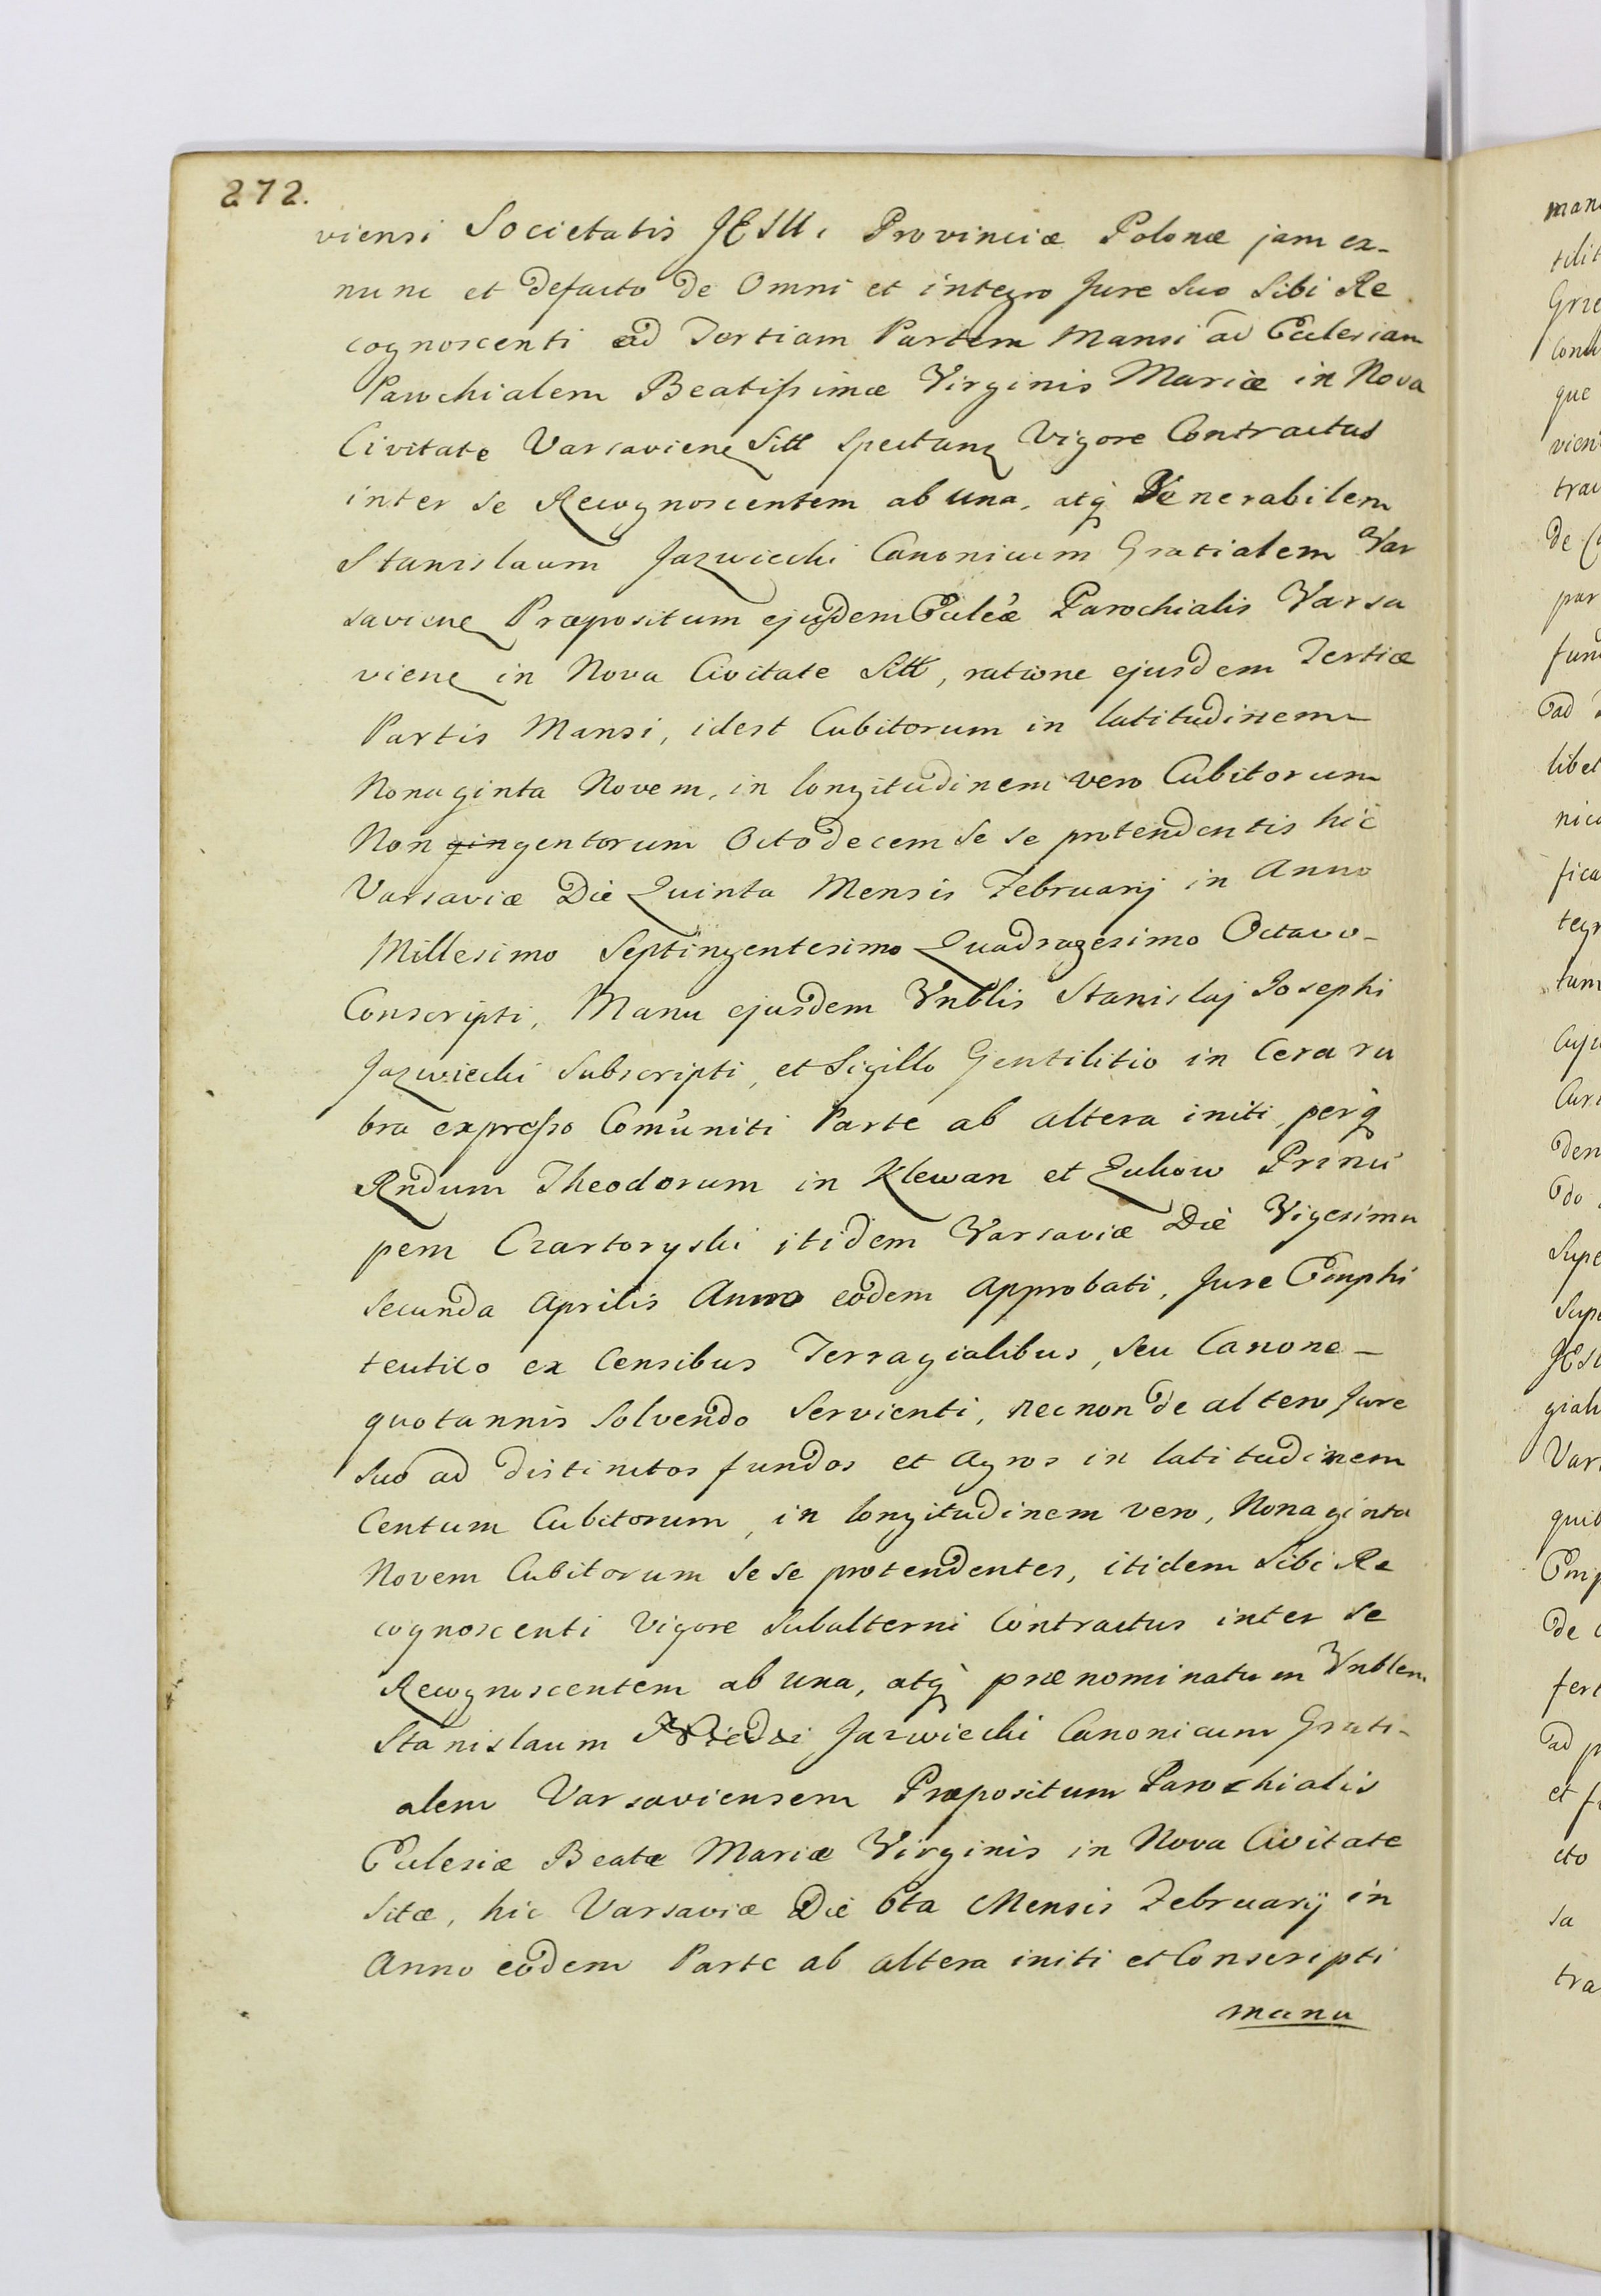 272.
viensi Societatis JESU, Provinciæ Polonæ jam ex-
nunc et defacto de Omni et integro Jure Suo Sibi Re
cognoscenti ad Tertiam Partem Mansi ad Ecclesiam
Parochialem Beatissimæ Virginis Mariæ in Nova
Civitate Varsavien Sitt spectan Vigore Contractus
inter se Recognoscentem ab una, atq Venerabilem
Stanislaum Jazwiecki Canonicum Gratialem Var
savien Præpositum ejusdem Eccleæ Parochialis Varsa
vien in Nova Civitate Sitt, ratione ejusdem Tertiæ
Partis Mansi, idest Cubitorum in latitudinem
Nonaginta Novem, in longitudinem vero Cubitorum
Non gingentorum Octodecem se se protendentis hic
Varsaviæ Die Quinta Mensis Februarij in Anno
Millesimo Septingentesimo Quadragesimo Octavo-
Conscripti, Manu ejusdem Vnblis Stanislaj Josephi
Jazwiecki Subscripti, et Sigillo Gentilitio in Cera ru
bra expresso Comuniti Parte ab altera initi, perq
Rndum Theodorum in Klewan et Zukow Princi
pem Czartoryski itidem Varsaviæ Die Vigesima
secunda Aprilis Anno eodem Approbati, Jure Emphi
teutico ex Censibus Terragialibus, seu Canone-
quotannis solvendo Servienti, necnon de altero Jure
suo ad distinctos fundos et Agros in latitudinem
Centum Cubitorum, in longitudinem vero, Nonaginta
Novem Cubitorum se se protendentes, itidem Sibi Re
cognoscenti Vigore Subalterni Contractus inter se
Recognoscentem ab una, atq prænominatum Vnblem
Stanislaum Jazwiecki Canonicum Grati-
alem Varsaviensem Præpositum Parochialis
Ecclesiæ Beatæ Mariæ Virginis in Nova Civitate
Sitæ, hic Varsaviæ Die 6ta Mensis Februarij in
Anno eodem Parte ab altera initi et Conscripti
manu